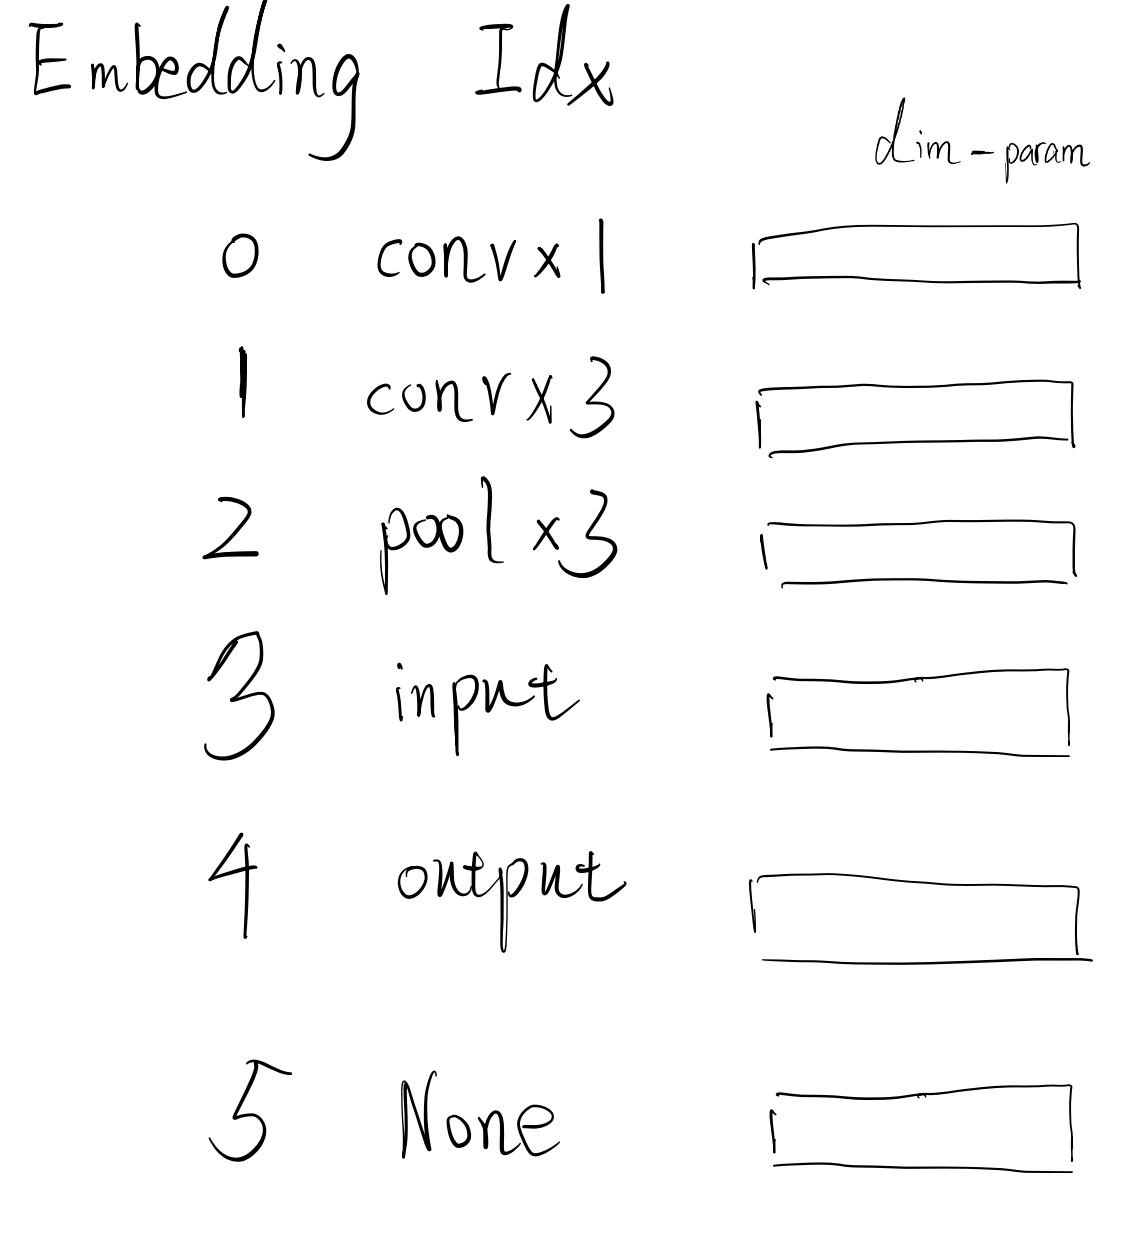 Embedding Idx
dim-param
0 conv x 1
1 conv x 3
2 pool x 3
3 input
4 output
5 None